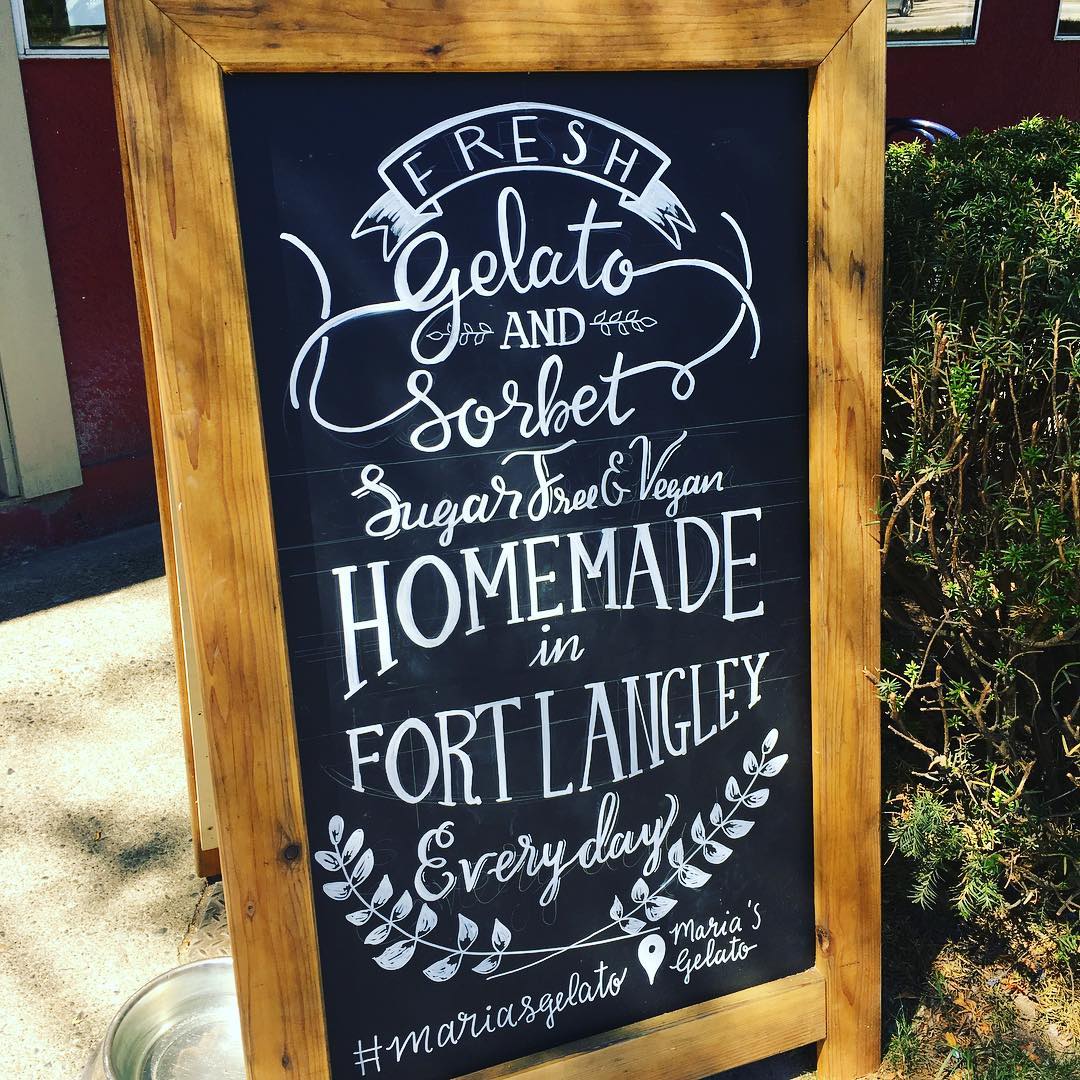 FRESH
Gelato
AND
Sorbet
Sugar Free & Vegan
HOMEMADE
in
FORT LANGLEY
Every day
Maria's
Gelato
#mariasgelato